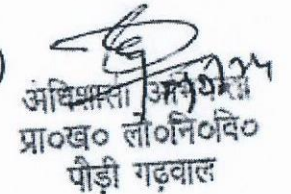 अधिशासी अभियन्ता
प्रा०ख० लो०नि०वि०
पौड़ी गढ़वाल